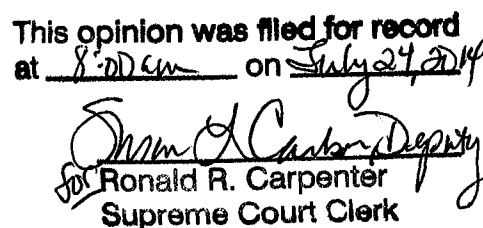 This opinion was filed for record
at 8:00 am on July 24, 2014
Susan L. Carlson, Deputy
for Ronald R. Carpenter
Supreme Court Clerk